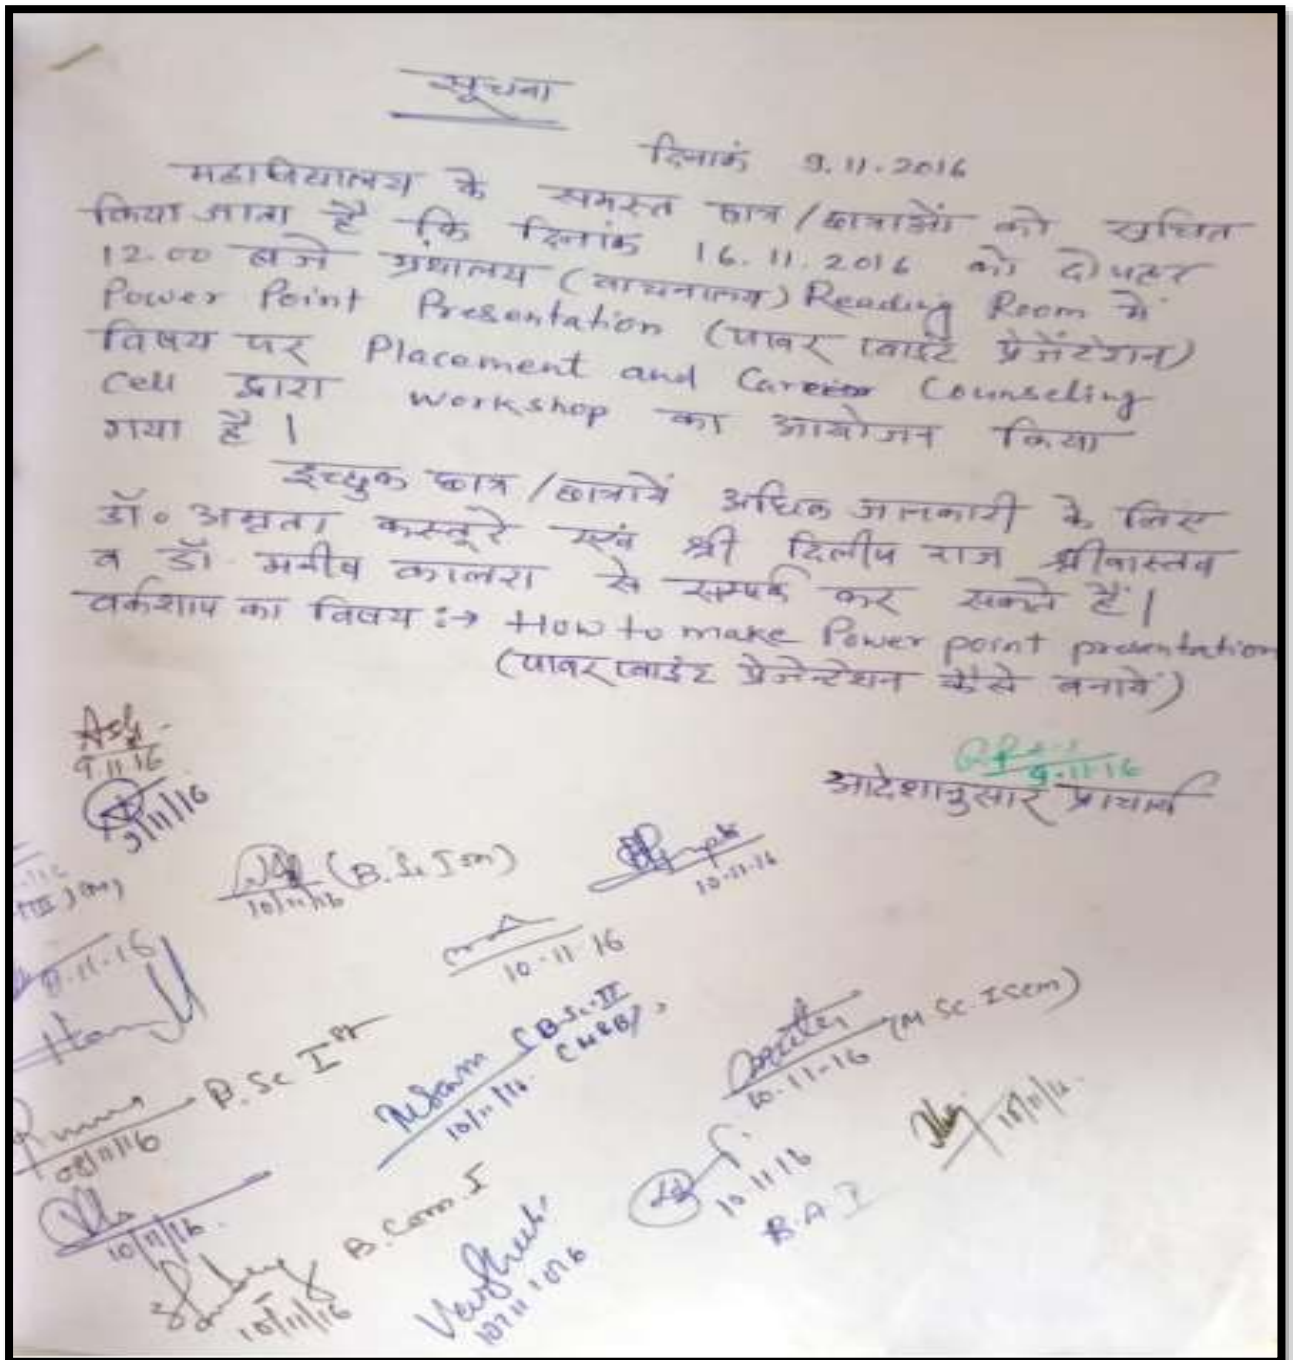 सूचना
दिनांक 9.11.2016
महाविद्यालय के समस्त छात्र/छात्राओं को सूचित
किया जाता है कि दिनांक 16.11.2016 को दोपहर
12.00 बजे ग्रंथालय (वाचनालय) Reading Room में
Power Point Presentation (पावर प्वाइंट प्रेजेंटेशन)
विषय पर Placement and Career Counseling
Cell द्वारा workshop का आयोजन किया
गया है।
इच्छुक छात्र/छात्रायें अधिक जानकारी के लिए
डॉ. अमृता कस्तूरे एवं श्री दिलीप राज श्रीवास्तव
व डॉ. मनीष कालरा से सम्पर्क कर सकते हैं।
वर्कशाप का विषय :→ How to make Power point presentation
(पावर प्वाइंट प्रेजेन्टेशन कैसे बनायें)
9.11.16
9.11.16
आदेशानुसार प्राचार्य
9/11/16
(B.Sc I sem)
10/11/16
10.11.16
10-11-16
B.Sc Ist
08/11/16
(B.Sc-II
10/11/16
(M.Sc. I sem)
10-11-16
10/11/16
10/11/16
10.11.16
B.A I
B.Com. I
10/11/16